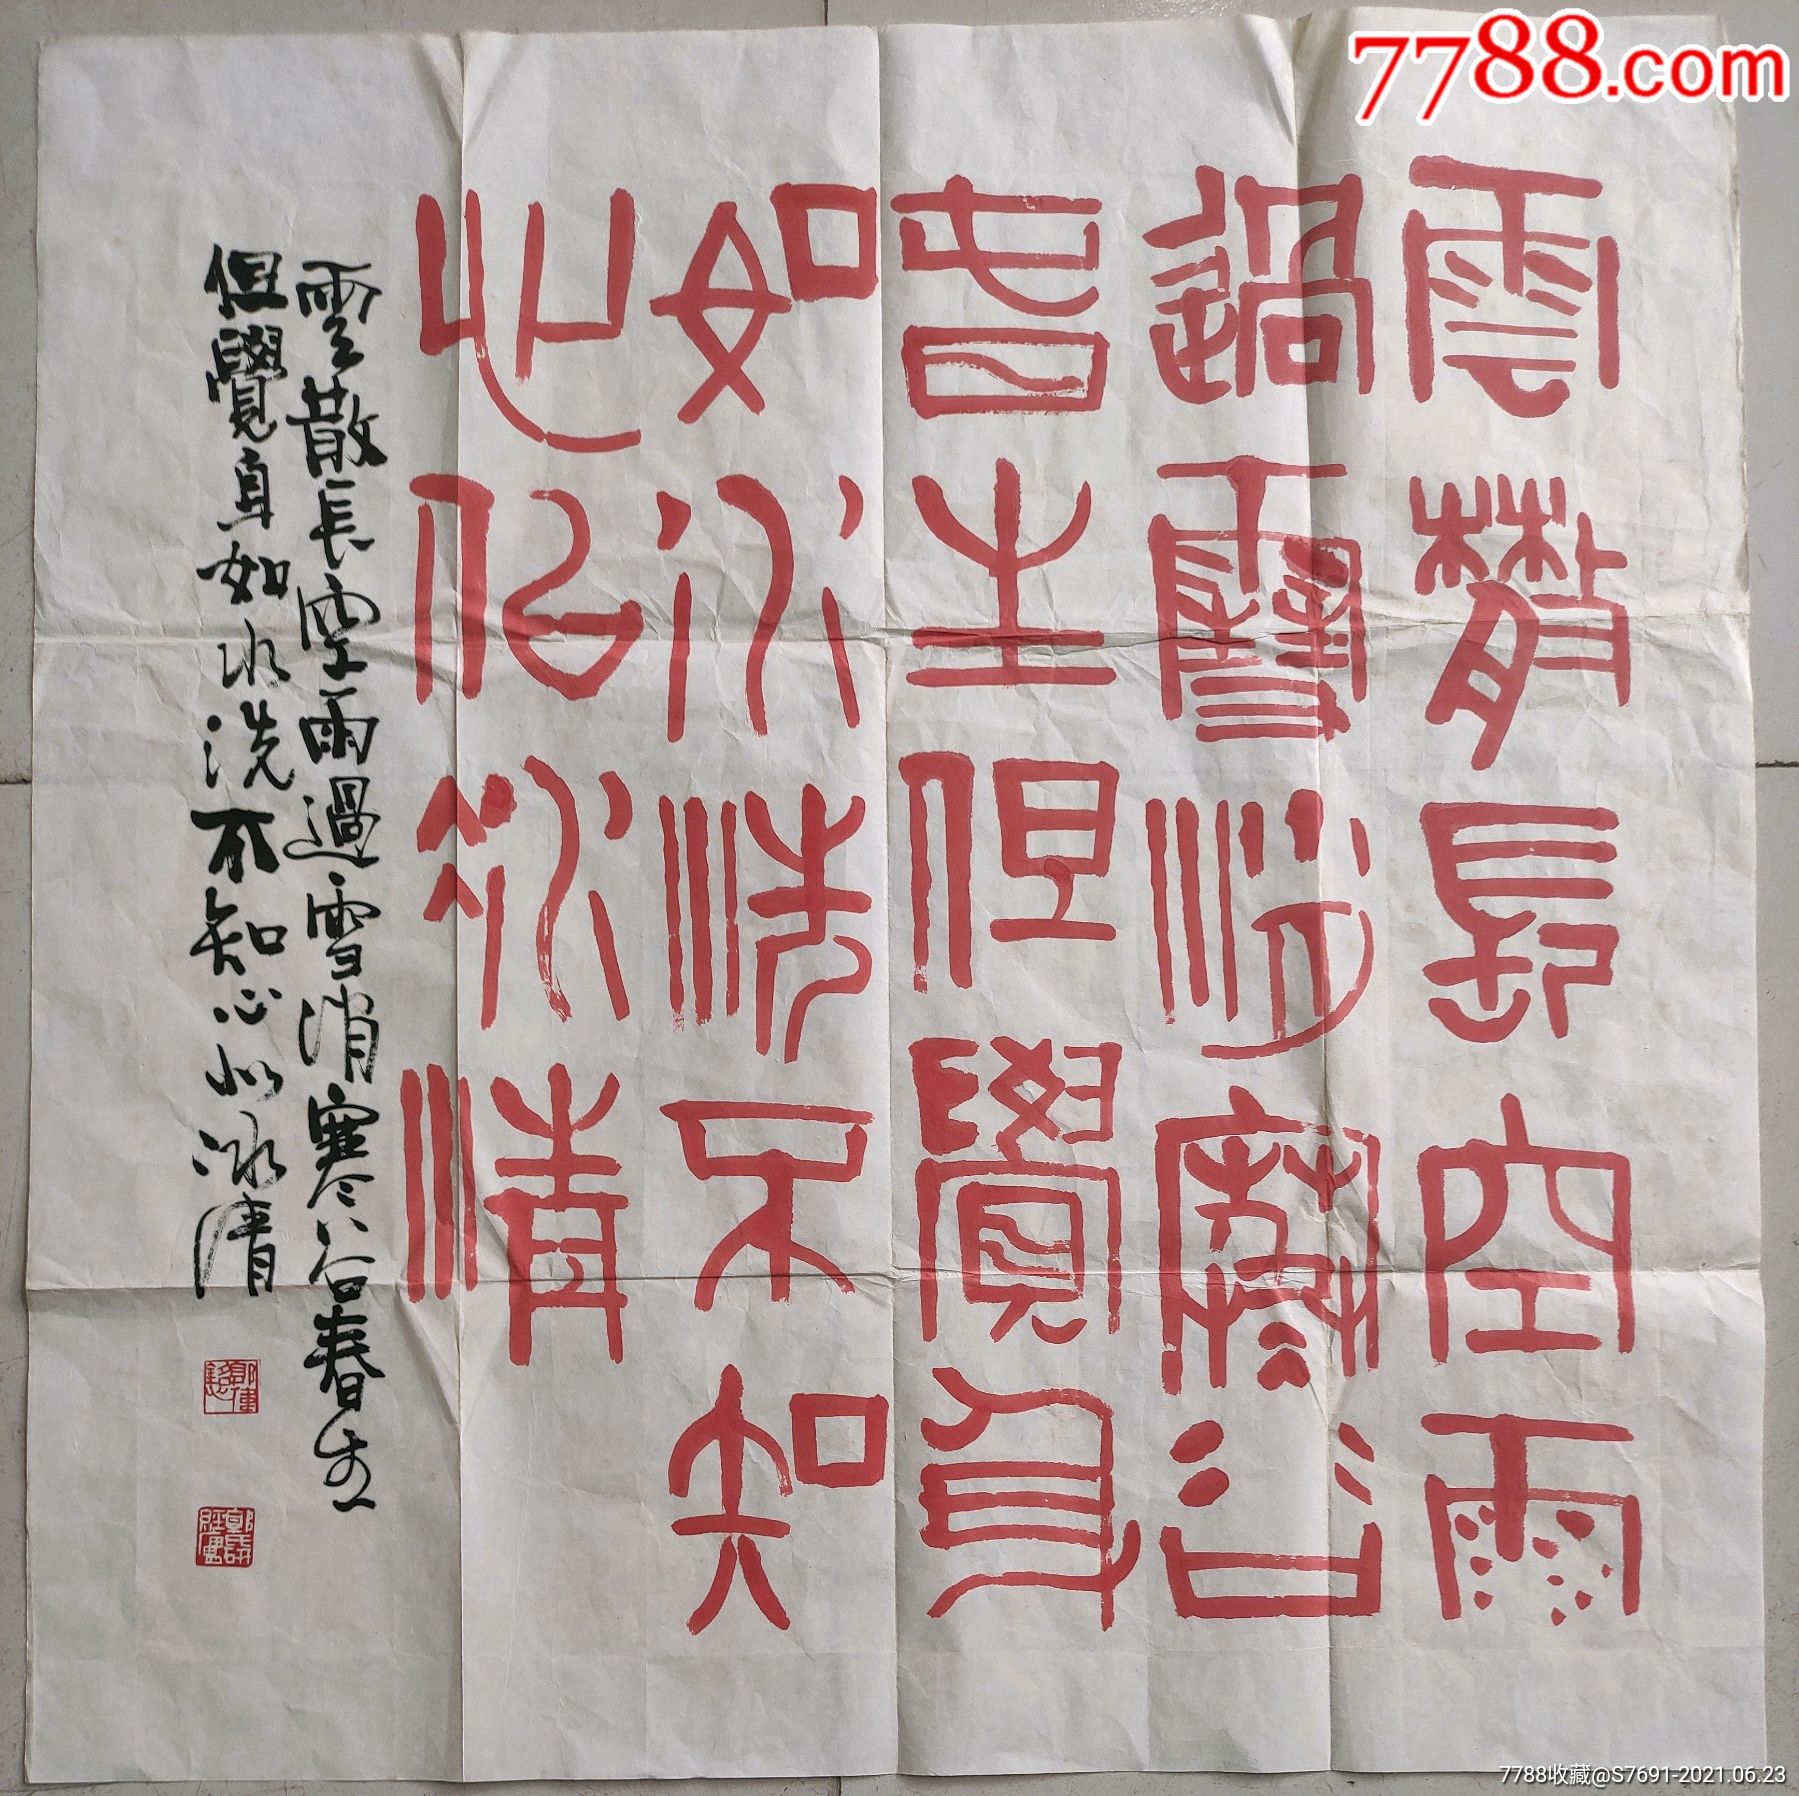 7788.com
雲散長空雨
過雪消寒谷
春生但覺身
如水洗不知
心似冰清
雲散長空雨過雪消寒谷春生
但覺身如水洗不知心似冰清
7788收藏@S7691-2021.06.23